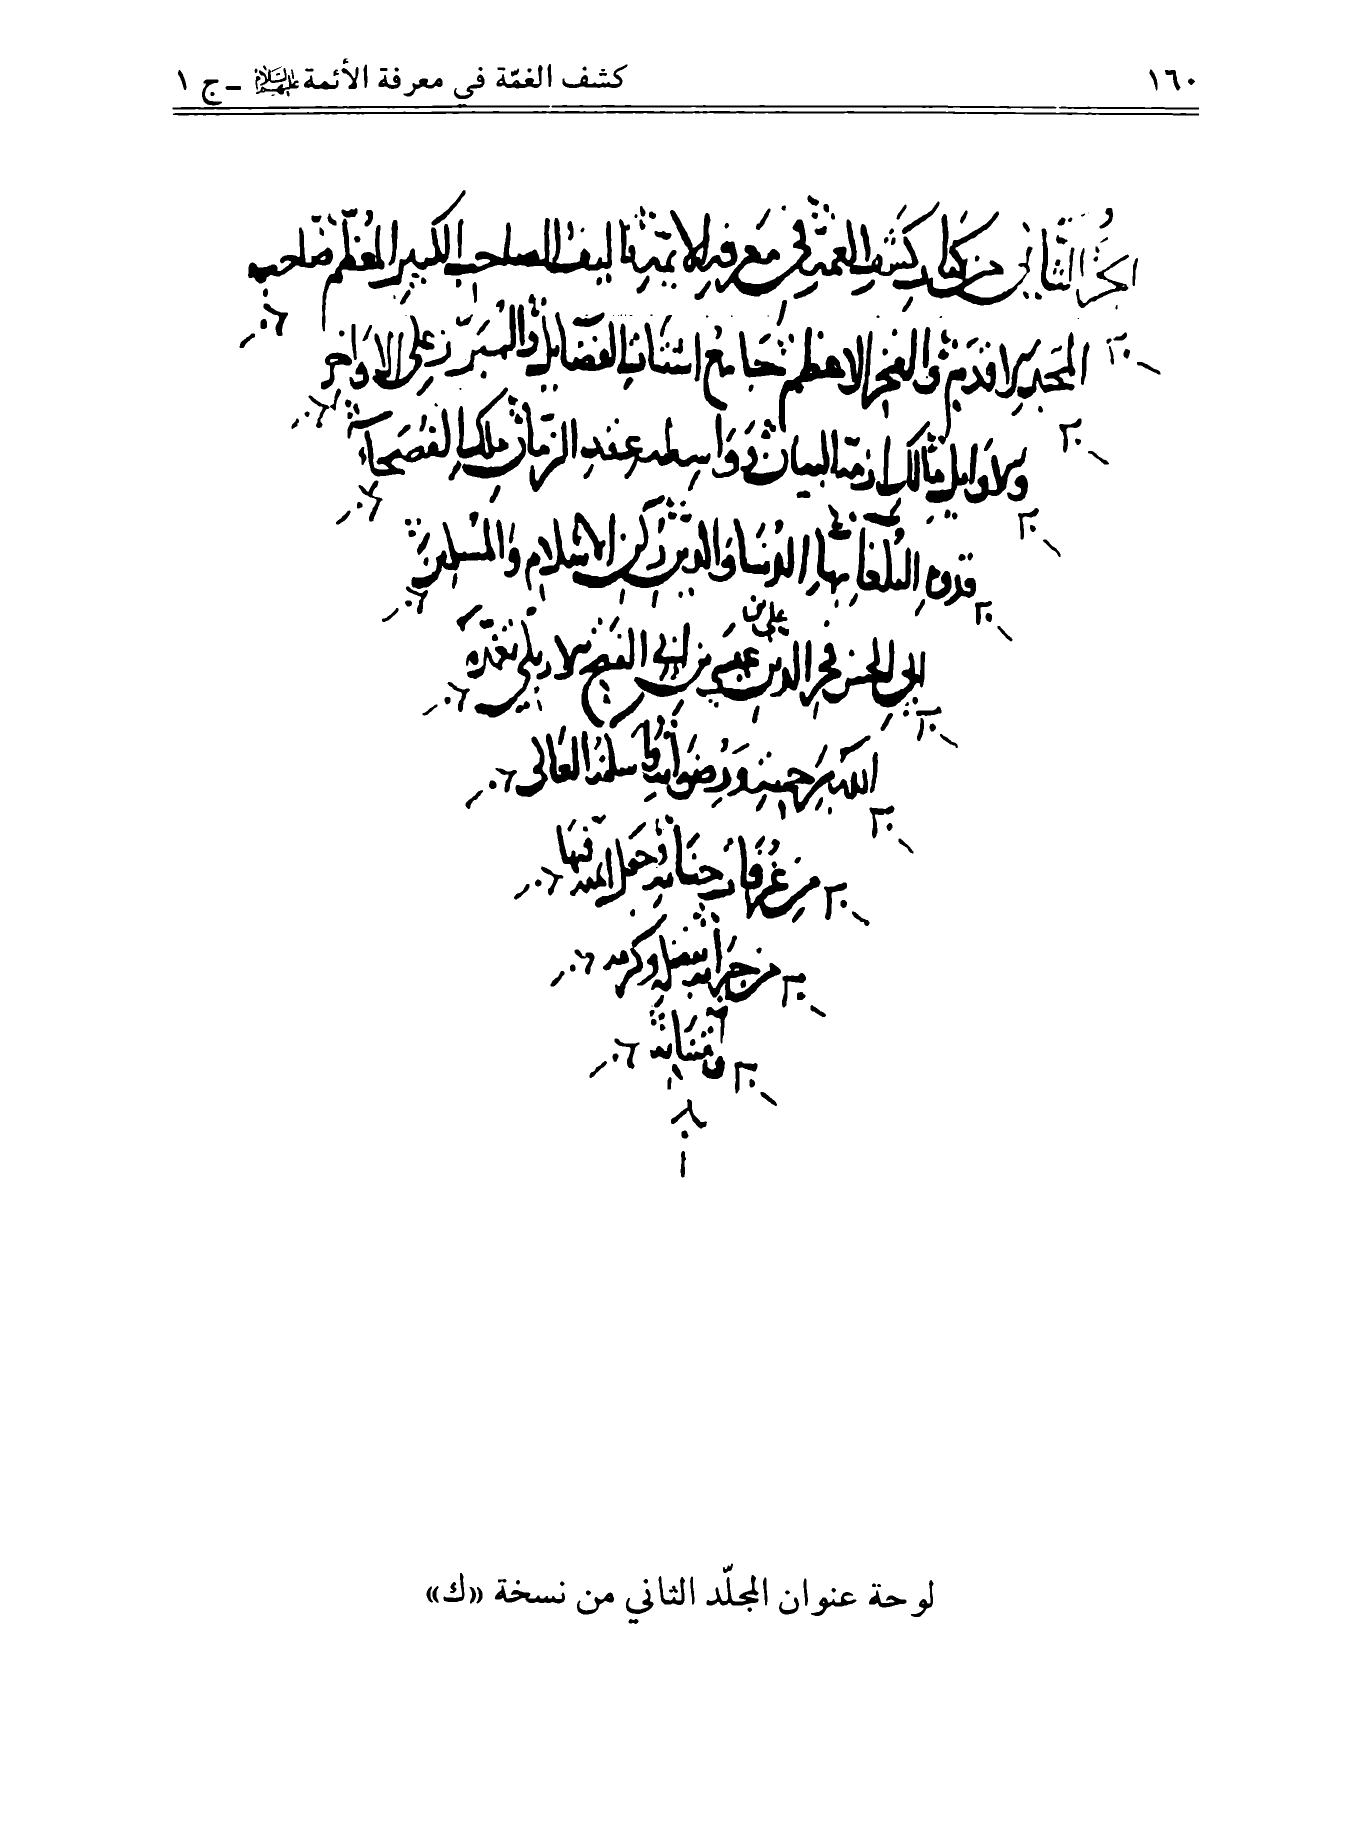 ١٦٠
كشف الغمّة في معرفة الأئمة عليهم السلام - ج ١
الجزء الثاني من كتاب كشف الغمة في معرفة الأئمة تأليف الصاحب الكبير المعظم صاحب
المجد الاقدم والفخر الاعظم جامع اشتات الفضايل والمبرز على الاواخر
والاوايل مالك ازمة البيان وواسطة عقد الزمان ملك الفصحاء
قدوة البلغا بهاء الدنيا والدين ركن الاسلام والمسلمين
ابي الحسن علي بن فخر الدين عيسى بن ابي الفتح الاربلي تغمده
الله برحمته ورضوانه واسكنه العالي
من غرفات جنانه وجعل فيها
من جيرانه بفضله وكرمه
وامتنانه
لوحة عنوان المجلّد الثاني من نسخة «ك»